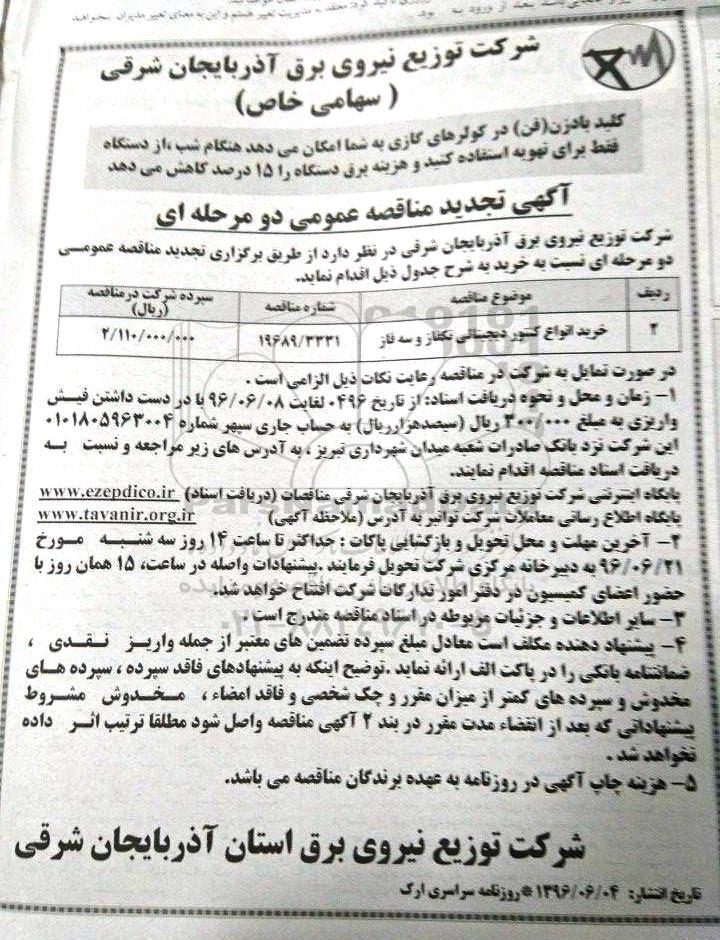 شرکت توزیع نیروی برق آذربایجان شرقی
( سهامی خاص)
کلید بادزن(فن) در کولرهای گازی به شما امکان می دهد هنگام شب ،از دستگاه
فقط برای تهویه استفاده کنید و هزینه برق دستگاه را ۱۵ درصد کاهش می دهد
آگهی تجدید مناقصه عمومی دو مرحله ای
شرکت توزیع نیروی برق آذربایجان شرقی در نظر دارد از طریق برگزاری تجدید مناقصه عمومی
دو مرحله ای نسبت به خرید به شرح جدول ذیل اقدام نماید.
ردیف موضوع مناقصه شماره مناقصه سپرده شرکت درمناقصه
(ریال)
۲ خرید انواع کنتور دیجیتالی تکفاز و سه فاز ۱۹۶۸۹/۳۳۳۱ ۲/۱۱۰/۰۰۰/۰۰۰
در صورت تمایل به شرکت در مناقصه رعایت نکات ذیل الزامی است .
۱- زمان و محل و نحوه دریافت اسناد: از تاریخ ۰۴۹۶ لغایت ۹۶/۰۶/۰۸ با در دست داشتن فیش
واریزی به مبلغ ۳۰۰/۰۰۰ ریال (سیصدهزارریال) به حساب جاری سپهر شماره ۰۱۰۱۸۰۵۹۶۳۰۰۴
این شرکت نزد بانک صادرات شعبه میدان شهرداری تبریز ، به آدرس های زیر مراجعه و نسبت به
دریافت اسناد مناقصه اقدام نمایند.
پایگاه اینترنتی شرکت توزیع نیروی برق آذربایجان شرقی مناقصات (دریافت اسناد) www.ezepdico.ir
پایگاه اطلاع رسانی معاملات شرکت توانیر به آدرس (ملاحظه آگهی) www.tavanir.org.ir
۲- آخرین مهلت و محل تحویل و بازگشایی پاکات : حداکثر تا ساعت ۱۴ روز سه شنبه مورخ
۹۶/۰۶/۲۱ به دبیرخانه مرکزی شرکت تحویل فرمایند .پیشنهادات واصله در ساعت، ۱۵ همان روز با
حضور اعضای کمیسیون در دفتر امور تدارکات شرکت افتتاح خواهد شد.
۳- سایر اطلاعات و جزئیات مربوطه در اسناد مناقصه مندرج است .
۴- پیشنهاد دهنده مکلف است معادل مبلغ سپرده تضمین های معتبر از جمله واریز نقدی ،
ضمانتنامه بانکی را در پاکت الف ارائه نماید .توضیح اینکه به پیشنهادهای فاقد سپرده ، سپرده های
مخدوش و سپرده های کمتر از میزان مقرر و چک شخصی و فاقد امضاء ، مخدوش مشروط
پیشنهاداتی که بعد از انقضاء مدت مقرر در بند ۲ آگهی مناقصه واصل شود مطلقا ترتیب اثر داده
نخواهد شد .
۵- هزینه چاپ آگهی در روزنامه به عهده برندگان مناقصه می باشد.
شرکت توزیع نیروی برق استان آذربایجان شرقی
تاریخ انتشار: ۱۳۹۶/۰۶/۰۴ *روزنامه سراسری ارک